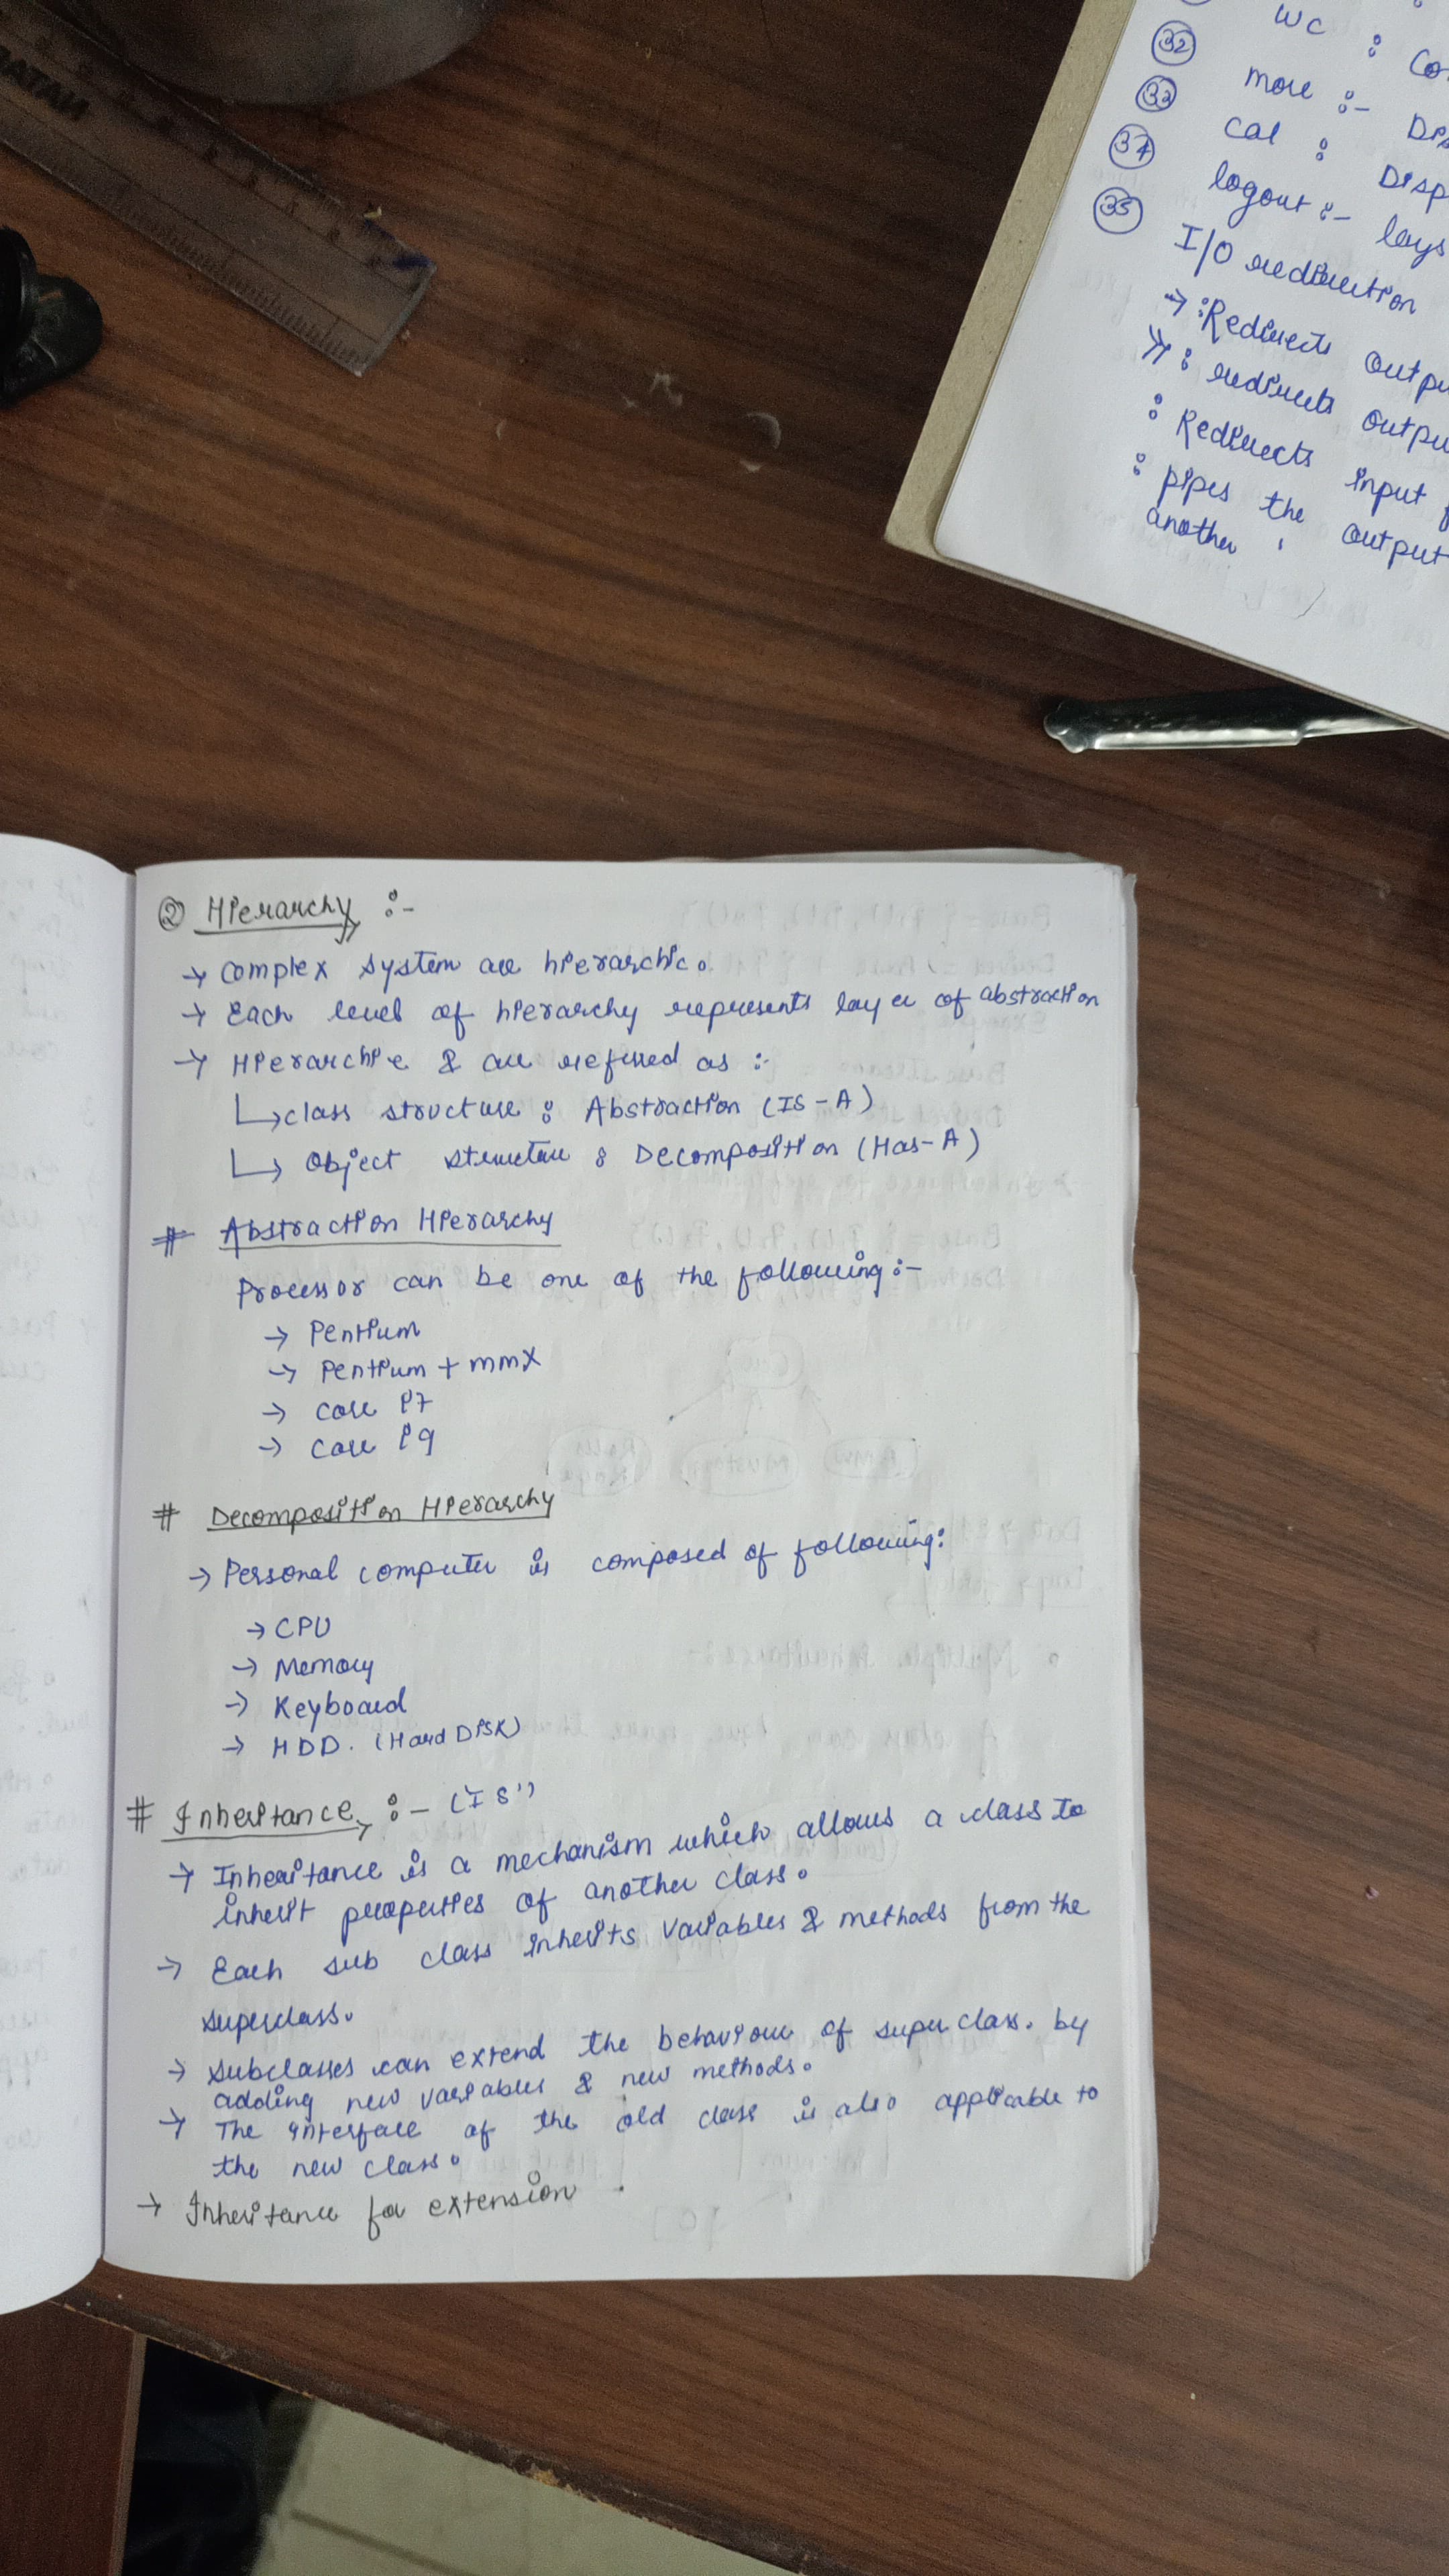 WC :
32
more :-
33
cal :
34
logout :-
35
I/O redirection
→ : Redirects
>> : redirects
: Redirects input
: pipes the output
another
② Hierarchy :-
→ Complex system are hierarchic.
→ Each level of hierarchy represents layer of abstraction
→ Hierarchie & are refered as :-
↳ class structure : Abstraction (IS-A)
↳ Object structure : Decomposition (Has-A)
# Abstraction Hierarchy
Processor can be one of the following :-
→ Pentium
→ Pentium + mmx
→ core i7
→ core i9
# Decomposition Hierarchy
→ Personal computer is composed of following:
→ CPU
→ Memory
→ Keyboard
→ HDD. (Hard Disk)
# Inheritance :- ("IS")
→ Inheritance is a mechanism which allows a class to
inherit properties of another class.
→ Each sub class inherits variables & methods from the
superclass.
→ subclasses can extend the behaviour of super class. by
adding new variables & new methods.
→ The interface of the old class is also applicable to
the new class.
→ Inheritance for extension